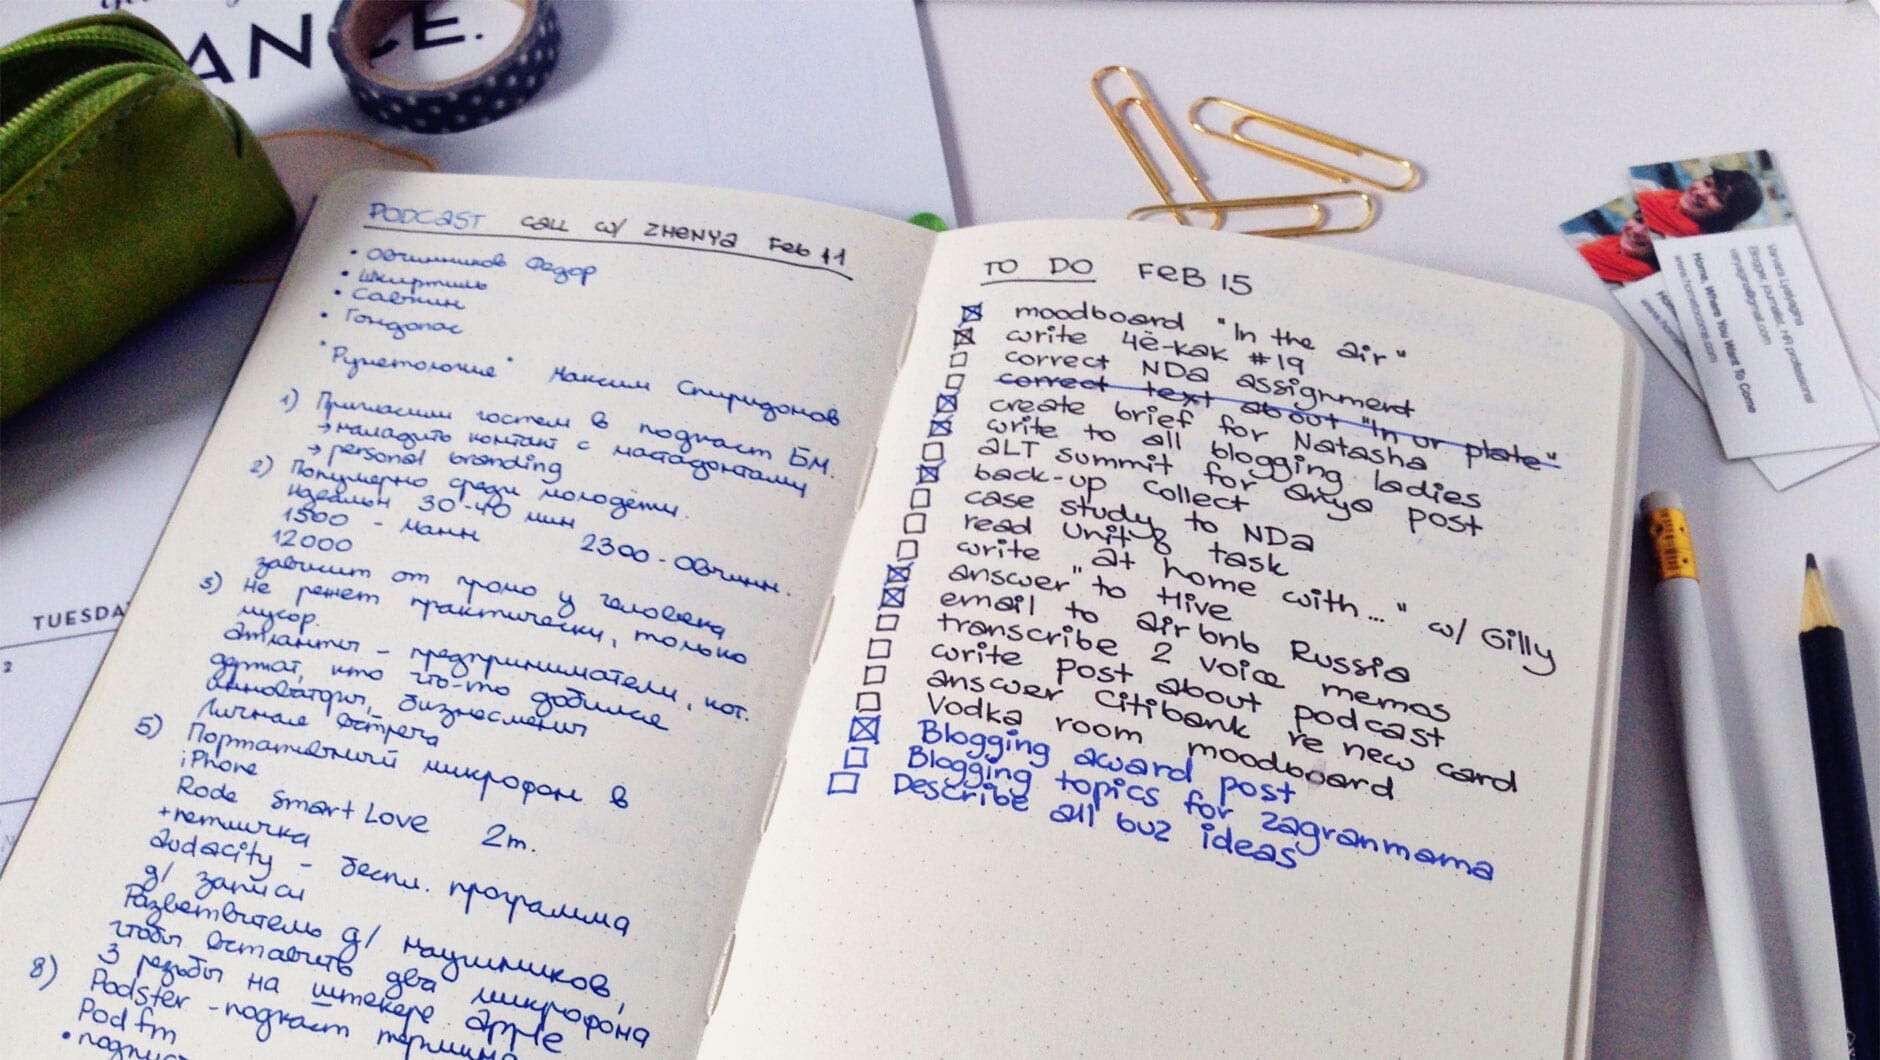 ANCE.
TUESDA
2
PODCAST call w/ ZHENYA Feb 11
• Овчинников Федор
• Шкиртиль
• Савкин
• Гондопас
"Рунетология" Максим Спиридонов
1) Пригласили гостем в подкаст БМ.
→ наладить контакт с мастадонтами
→ personal branding
2) Популярно среди молодёжи.
идеальн 30-40 мин
1500 - манн 2300 - Овчинн.
12000
зависит от промо у человека
3) Не режет практически, только
мусор.
атланты - предприниматели, кот.
держат, кто что-то добился
инноваторы, бизнесмены
Личная встреча
5) Портативный микрофон в
iPhone
Rode Smart Love 2m.
+ петличка
audacity - беспл. программа
д/ записи
Разветвитель д/ наушников,
чтобы вставить два микрофона
3 резьбы на штекере apple
8) Podster - подкаст
Pod fm
TO DO FEB 15
moodboard "In the air"
write чё-как #19
correct NDA assignment
correct text about "In ur plate"
create brief for Natasha
write to all blogging ladies
ALT summit for anya post
back-up collect
case study to NDA
read Unit 8 task
write "at home with..." w/ Gilly
answer to Hive
email to airbnb Russia
transcribe 2 voice memos
write post about podcast
answer Citibank re new card
Vodka room moodboard
Blogging award post
Blogging topics for zagranmama
Describe all buz ideas
Blogger, journalist, HR professional
Home, Where You Want To Come